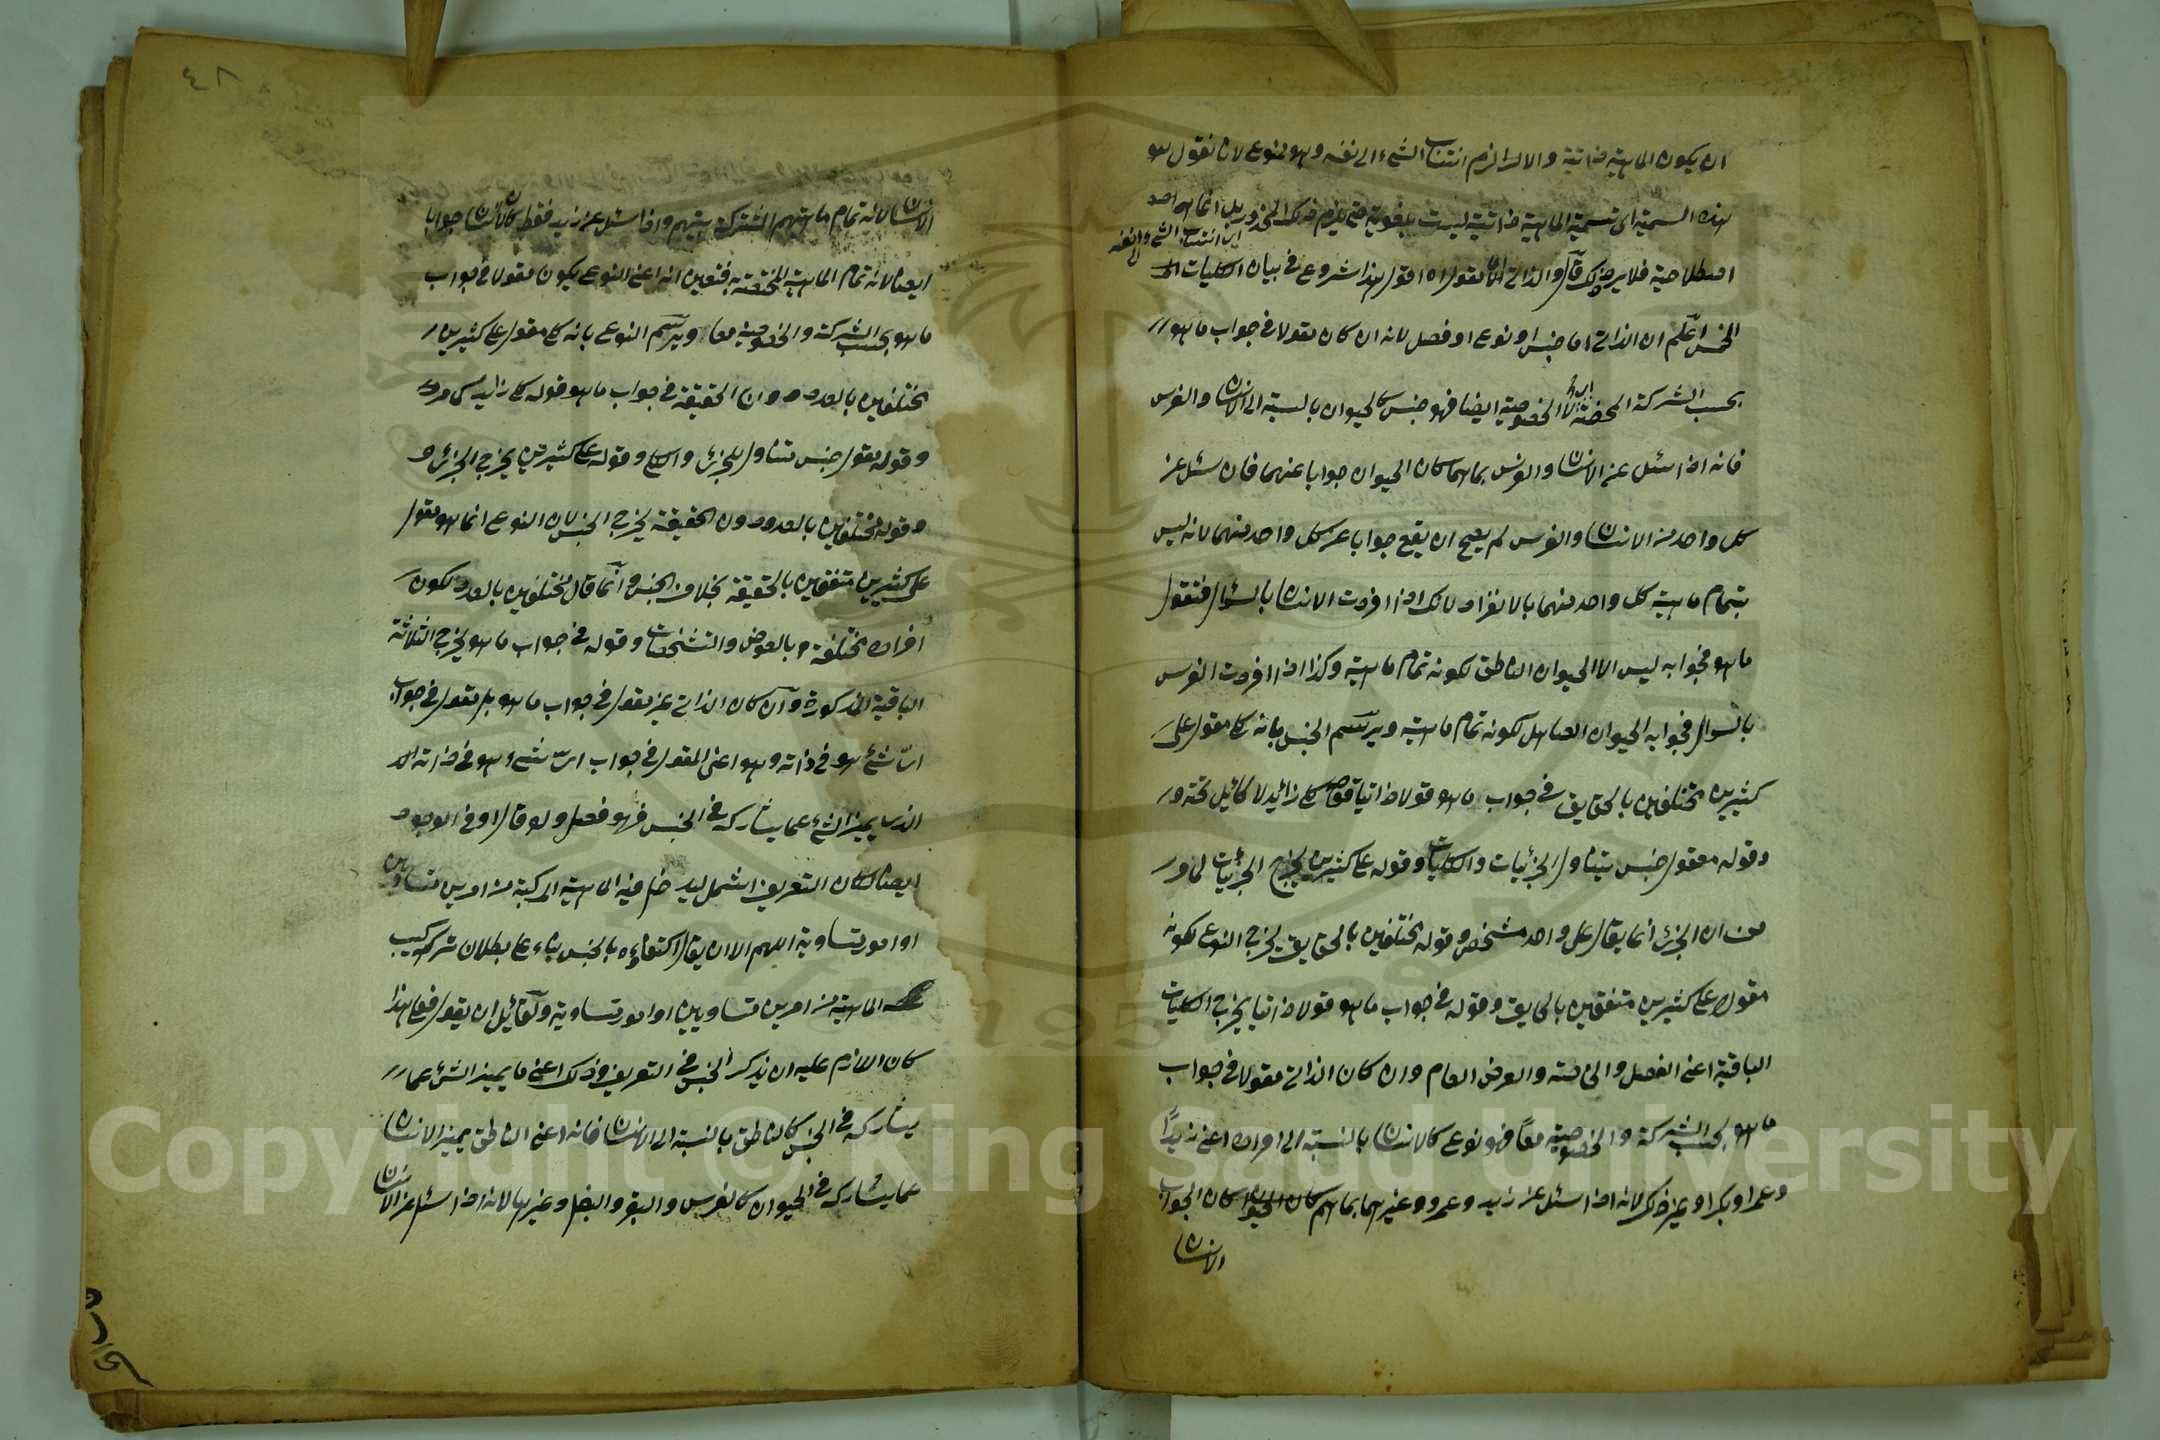 ان يكون الماهية ذاتية والا لزم انتساب الشيء الى نفسه وهو ممنوع لانا نقول هو
هذه التسمية اى تسمية الماهية ذاتية ليست بلغوية حتى يلزم ذلك المحذور بل انما هى
اى انتساب الشيء الى نفسه
اصطلاحية فلا يرد ذلك قال والذاتى اما مقول اه اقول هذا شروع فى بيان الكليات
الخمس اعلم ان الذاتى اما جنس او نوع او فصل لانه ان كان مقولا فى جواب ما هو
بحسب الشركة المحضة لا الخصوصية ايضا فهو جنس كالحيوان بالنسبة الى الانسان والفرس
فانه اذا سئل عن الانسان والفرس بما هما كان الحيوان جوابا عنهما فان سئل عن
كل واحد من الانسان والفرس لم يصح ان يقع جوابا عن كل واحد منهما لانه ليس
بتمام ماهية كل واحد منهما بالانفراد لانك اذا افردت الانسان بالسؤال فتقول
ما هو فجوابه ليس الا الحيوان الناطق لكونه تمام ماهيته وكذا اذا افردت الفرس
بالسؤال فجوابه الحيوان الصاهل لكونه تمام ماهيته ويرسم الجنس بانه كلى مقول على
كثيرين مختلفين بالحقايق فى جواب ما هو قولا ذاتيا قوله كلى زائد لا طائل تحته
وقوله مقول جنس يتناول الجزئيات والكليات وقوله على كثيرين يخرج الجزئيات لما مر
من ان الجزئى انما يقال على واحد مشخص وقوله مختلفين بالحقايق يخرج النوع لكونه
مقولا على كثيرين متفقين بالحقايق وقوله فى جواب ما هو قولا ذاتيا يخرج الكليات
الباقية اعنى الفصل والخاصة والعرض العام وان كان الذاتى مقولا فى جواب
ما هو بحسب الشركة والخصوصية معاً فهو نوع كالانسان بالنسبة الى افراده اعنى زيداً
وعمرا وبكرا وغير ذلك لانه اذا سئل عن زيد وعمرو وغيرهما بما هم كان الجواب
الانسان
٤٨
الانسان لانه تمام ماهيتهم المشتركة بينهم واذا سئل عن زيد فقط كان الانسان جوابا
ايضا لانه تمام الماهية المختصة به فتعين انه اعنى النوع يكون مقولا فى جواب
ما هو بحسب الشركة والخصوصية معا ويرسم النوع بانه كلى مقول على كثيرين
مختلفين بالعدد دون الحقيقة فى جواب ما هو قوله كلى زائد كما مر
وقوله مقول جنس متناول للجزئى والكلى وقوله على كثيرين يخرج الجزئى
وقوله مختلفين بالعدد دون الحقيقة يخرج الجنس لان النوع انما هو مقول
على كثيرين متفقين بالحقيقة بخلاف الجنس وانما قال مختلفين بالعدد لكون
افراده مختلفة بالعوض والتشخصات وقوله فى جواب ما هو يخرج الثلاثة
الباقية المذكورة وان كان الذاتى غير مقول فى جواب ما هو بل مقول فى جواب
اىّ شئ هو فى ذاته وهو اعنى المقول فى جواب اىّ شىء هو فى ذاته
الذى يميز الشئ عما يشاركه فى الجنس فهو فصل ولو قال او فى الوجود
ايضا لكان التعريف اشمل ليدخل فيه الماهية المركبة من امرين متساويين
او امور متساوية اللهم الا ان يقال اكتفاؤه بالجنس بناء على بطلان تركيب
الماهية من امرين متساويين او امور متساوية ولقائل ان يقول فعلى هذا
كان اللازم عليه ان يذكر الجنس فى التعريف وذلك اعنى ما يميز الشئ عما
يشاركه فى الجنس كالناطق بالنسبة الى الانسان فانه اعنى الناطق يميز الانسان
عما يشاركه فى الحيوان كالفرس والبقر والبغل وغيرها لانه اذا سئل عن الانسان
Copyright © King Saud University
1957